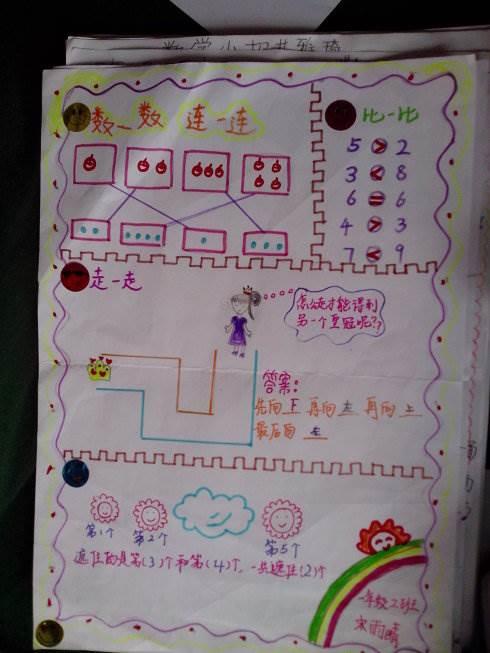 数学小切
数一数 连一连
比一比
5 > 2
3 < 8
6 = 6
4 > 3
7 < 9
走一走
怎么走才能得到
另一个皇冠呢?
答案:
先向 下 再向 左 再向 上
最后向 左
第1个 第2个 第5个
遮住的是第(3)个和第(4)个,一共遮住(2)个
一年级2班
宋雨晴